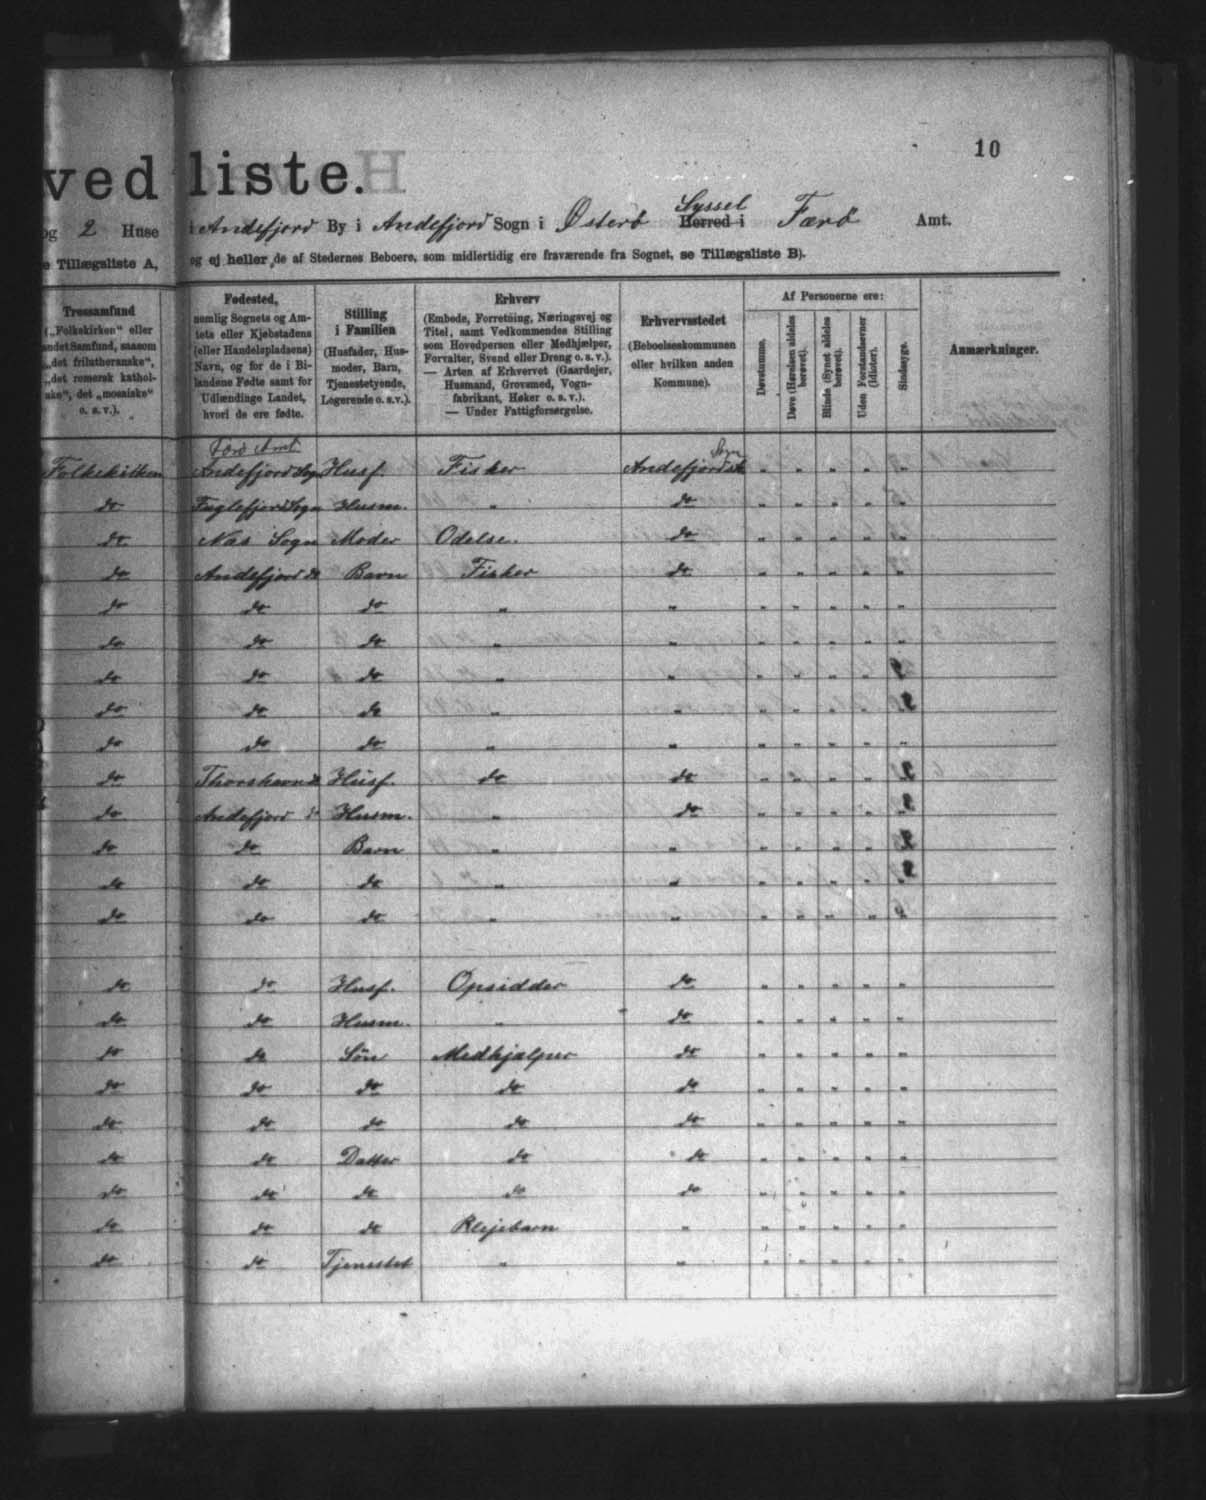 10
vedliste.
og 2 Huse i Andefjord By i Andefjord Sogn i Østerö Syssel Herred i Færö Amt.
e Tillægsliste A, og ej heller de af Stedernes Beboere, som midlertidig ere fraværende fra Sognet, se Tillægsliste B).
Trossamfund
(„Folkekirken“ eller
andet Samfund, saasom
„det frilutheranske“,
„det romersk kathol-
ske“, det „mosaiske“
o. s. v.).
Fødested,
nemlig Sognets og Am-
tets eller Kjøbstadens
(eller Handelspladsens)
Navn, og for de i Bi-
landene Fødte samt for
Udlændinge Landet,
hvori de ere fødte.
Stilling
i Familien
(Husfader, Hus-
moder, Barn,
Tjenestetyende,
Logerende o. s. v.).
Erhverv
(Embede, Forretning, Næringsvej og
Titel, samt Vedkommendes Stilling
som Hovedperson eller Medhjælper,
Forvalter, Svend eller Dreng o. s. v.).
— Arten af Erhvervet (Gaardejer,
Husmand, Grovsmed, Vogn-
fabrikant, Høker o. s. v.).
— Under Fattigforsørgelse.
Erhvervsstedet
(Beboelseskommunen
eller hvilken anden
Kommune).
Af Personerne ere:
Døvstumme.
Døve (Hørelsen aldeles
berøvet).
Blinde (Synet aldeles
berøvet).
Uden Forstandsevner
(Idioter).
Sindssyge.
Anmærkninger.
Færö Amt Sogn
Folkekirken Andefjord Sogn Husf. Fisker Andefjord „ „ „ „ „
do Fuglefjord Sogn Husm. „ do „ „ „ „ „
do Nas Sogn Moder Odelse. do „ „ „ „ „
do Andefjord do Barn Fisker do „ „ „ „ „
do do do „ „ „ „ „ „ „
do do do „ „ „ „ „ „ „
do do do „ „ „ „ „ „
do do do „ „ „ „ „ „
do do do „ „ „ „ „ „ „
do Thorshavn Husf. do do „ „ „ „
do Andefjord do Husm. „ do „ „ „ „
do do Barn „ „ „ „ „ „
do do do „ „ „ „ „ „
do do do „ „ „ „ „ „
do do Husf. Opsidder do „ „ „ „ „
do do Husm. „ do „ „ „ „ „
do do Sön Medhjælper do „ „ „ „ „
do do do do do „ „ „ „ „
do do do do do „ „ „ „ „
do do Datter do do „ „ „ „ „
do do do do do „ „ „ „ „
do do do Plejebarn „ „ „ „ „ „
do do Tjenestet „ „ „ „ „ „ „